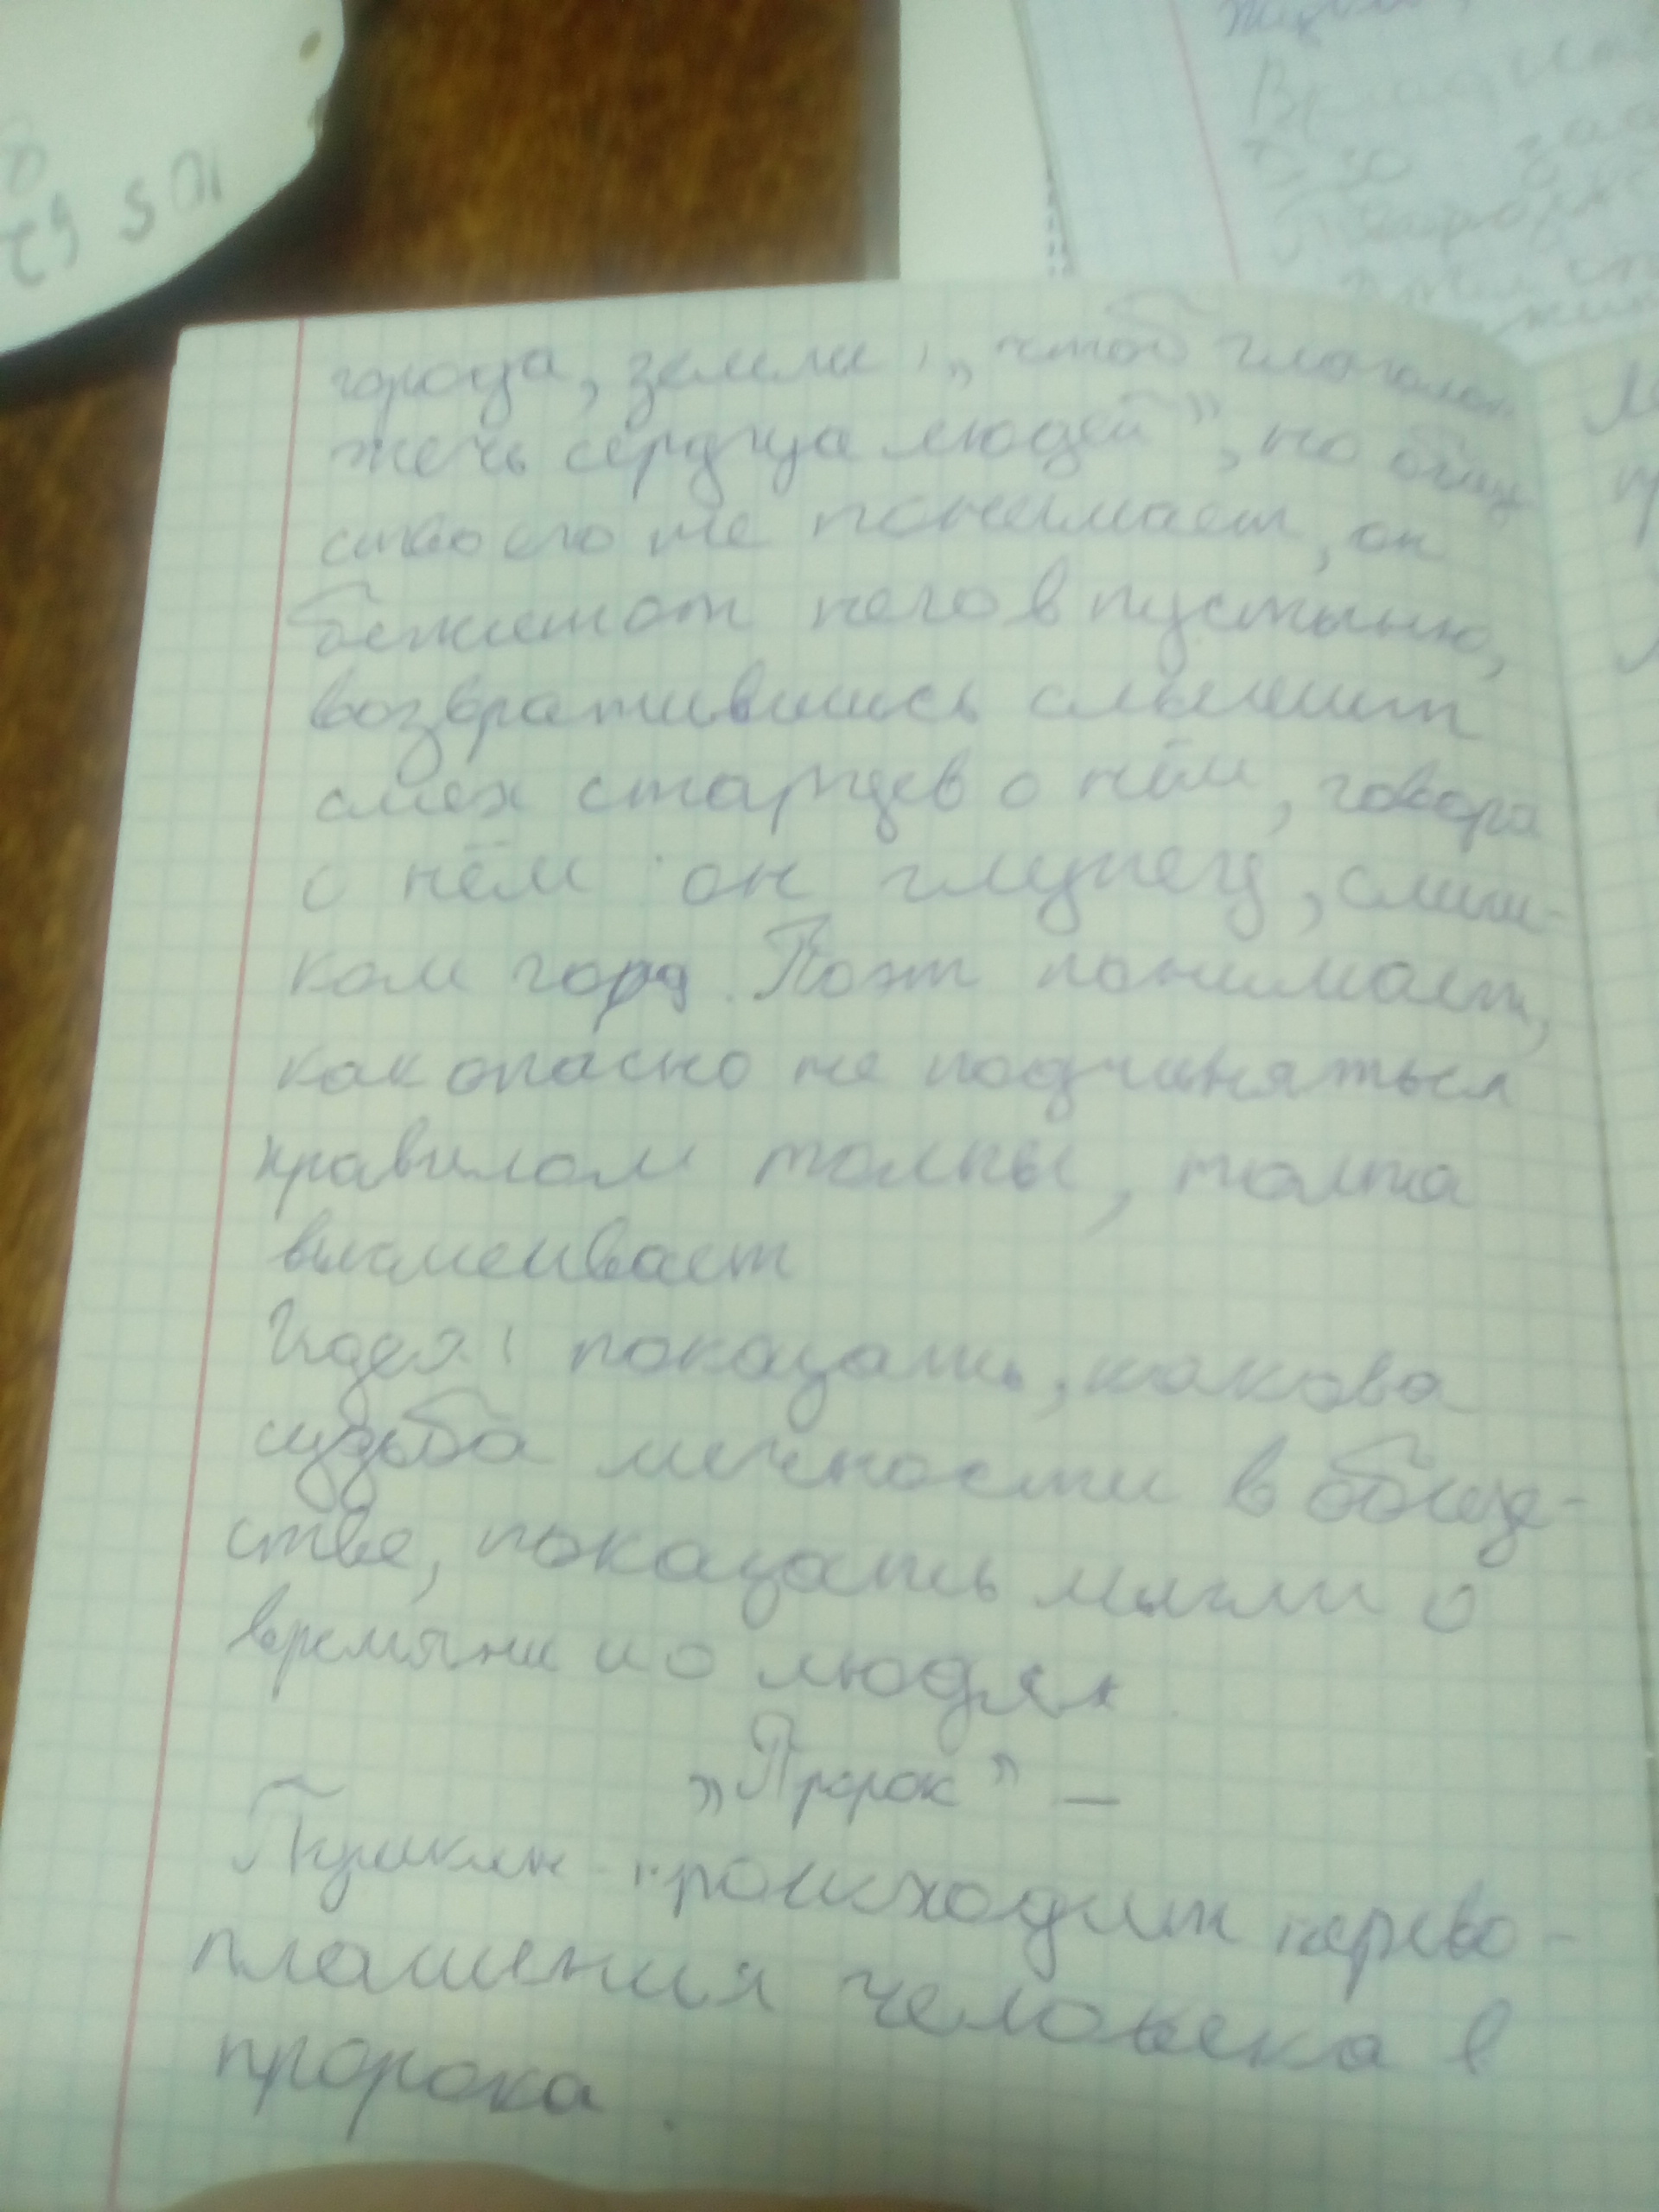 города, земли, „чтоб глаголом
жечь сердца людей”, но общ
ство его не понимает, он
бежит от него в пустыню,
возвратившись слышит
смех старцев о нём, говоря
о нём он глупец, слиш-
ком горд. Поэт понимает,
как опасно не подчиняться
правилам толпы, толпа
высмеивает
Идея: показать, какова
судьба личности в обще-
стве, показать мысли о
времяни и о людях.
„Пророк” –
Пушкин происходит перево-
площения человека в
пророка.